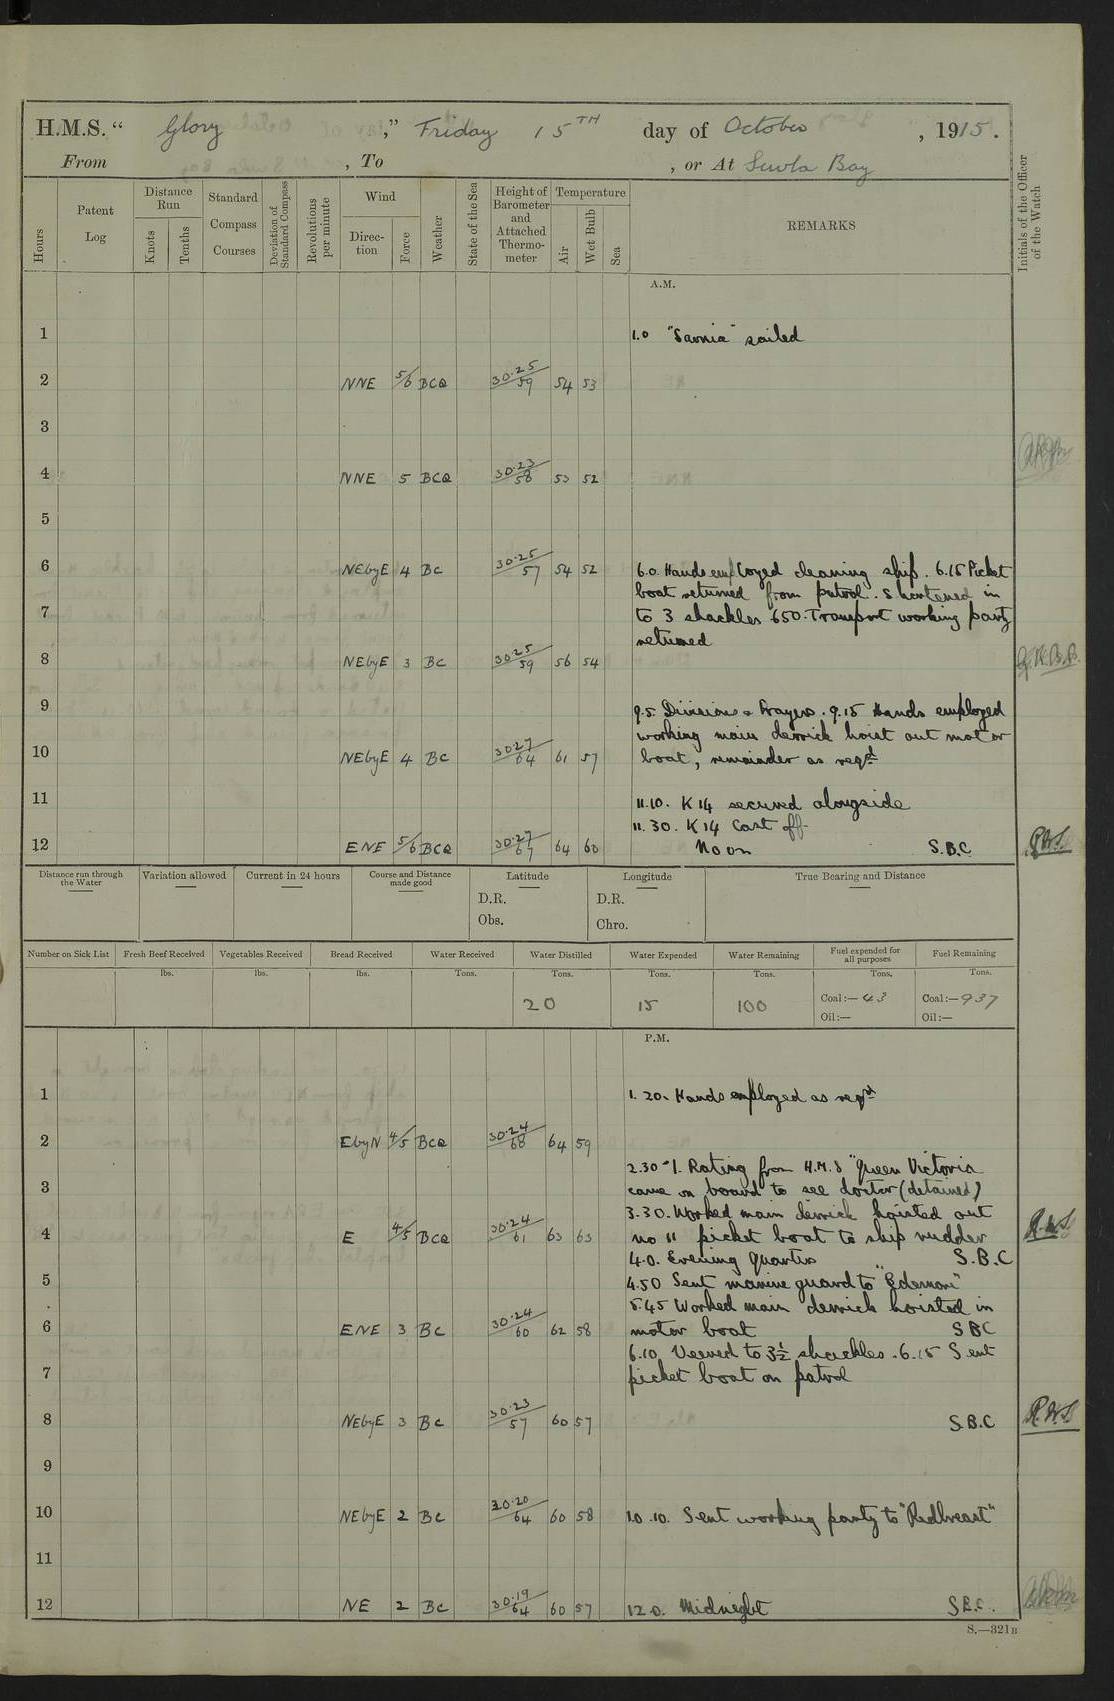 H.M.S. "Glory," Friday 15TH day of October, 1915.
From , To , or At Suvla Bay
Hours
Patent Log
Distance Run
Knots
Tenths
Standard Compass Courses
Deviation of Standard Compass
Revolutions per minute
Wind
Direction
Force
Weather
State of the Sea
Height of Barometer and Attached Thermometer
Temperature
Air
Wet Bulb
Sea
REMARKS
Initials of the Officer of the Watch
A.M.
1 1.0 "Savnia" sailed
2 NNE 5/6 BCQ 30.25/59 54 53
3
4 NNE 5 BCQ 30.23/58 53 52
5
6 NEbyE 4 BC 30.25/57 54 52 6.0. Hands employed cleaning ship. 6.15 Picket
boat returned from patrol. Shortened in
7 to 3 shackles 650. Transport working party
returned
8 NEbyE 3 BC 30.25/59 56 54
9 9.5. Divisions & Prayers. 9.15 Hands employed
working main derrick hoist out motor
10 NEbyE 4 BC 30.27/64 61 57 boat, remainder as reqd
11 11.10. K 14 secured alongside
11.30. K 14 Cast off.
12 ENE 5/6 BCQ 30.27/67 64 60 Noon S.B.C.
Distance run through the Water
Variation allowed
Current in 24 hours
Course and Distance made good
Latitude
D.R.
Obs.
Longitude
D.R.
Chro.
True Bearing and Distance
Number on Sick List
Fresh Beef Received
lbs.
Vegetables Received
lbs.
Bread Received
lbs.
Water Received
Tons.
Water Distilled
Tons.
20
Water Expended
Tons.
15
Water Remaining
Tons.
100
Fuel expended for all purposes
Tons.
Coal:— 43
Oil:—
Fuel Remaining
Tons.
Coal:— 937
Oil:—
P.M.
1 1.20. Hands employed as reqd
2 EbyN 4/5 BCQ 30.24/68 64 59
2.30 1. Rating from H.M.S "Queen Victoria
3 came on board to see doctor (detained)
3.30. Worked main derrick hoisted out
4 E 4/5 BCQ 30.24/61 63 63 no 11 picket boat to ship rudder
4.0. Evening quarters S.B.C
5 4.50 Sent marine guard to "Ednmore"
5.45 Worked main derrick hoisted in
6 ENE 3 BC 30.24/60 62 58 motor boat SBC
6.10. Veered to 3½ shackles. 6.15 Sent
7 picket boat on patrol
8 NEbyE 3 BC 30.23/57 60 57 S.B.C R.W.S
9
10 NEbyE 2 BC 30.20/64 60 58 10.10. Sent working party to "Redbreast"
11
12 NE 2 BC 30.19/64 60 57 12.0. Midnight S.B.C.
S.—321B